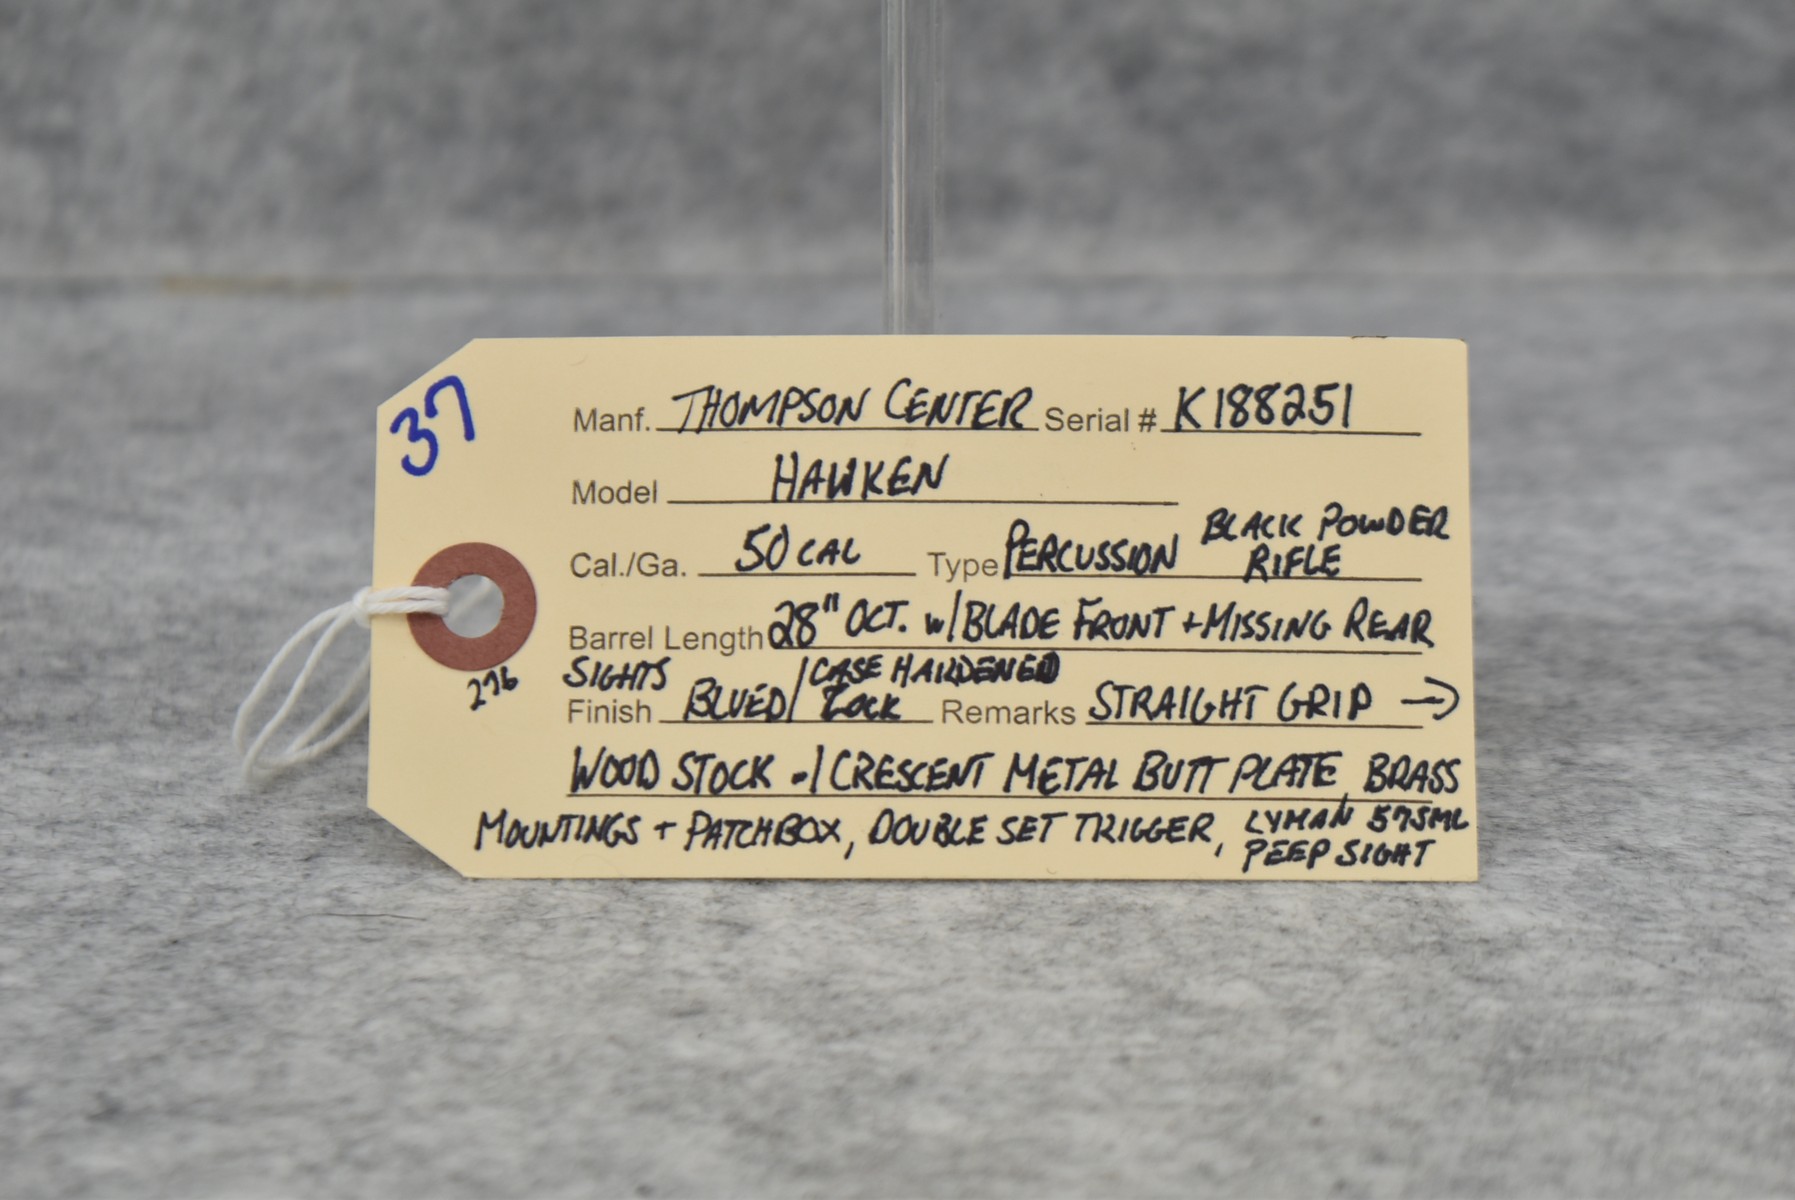 37
Manf. THOMPSON CENTER Serial # K188251
Model HAWKEN
Cal./Ga. 50 CAL Type PERCUSSION BLACK POWDER RIFLE
Barrel Length 28" OCT. w/ BLADE FRONT + MISSING REAR
SIGHTS
Finish BLUED / CASE HARDENED LOCK Remarks STRAIGHT GRIP →
276
WOOD STOCK w/ CRESCENT METAL BUTT PLATE, BRASS
MOUNTINGS + PATCHBOX, DOUBLE SET TRIGGER, LYMAN 57SML
PEEP SIGHT